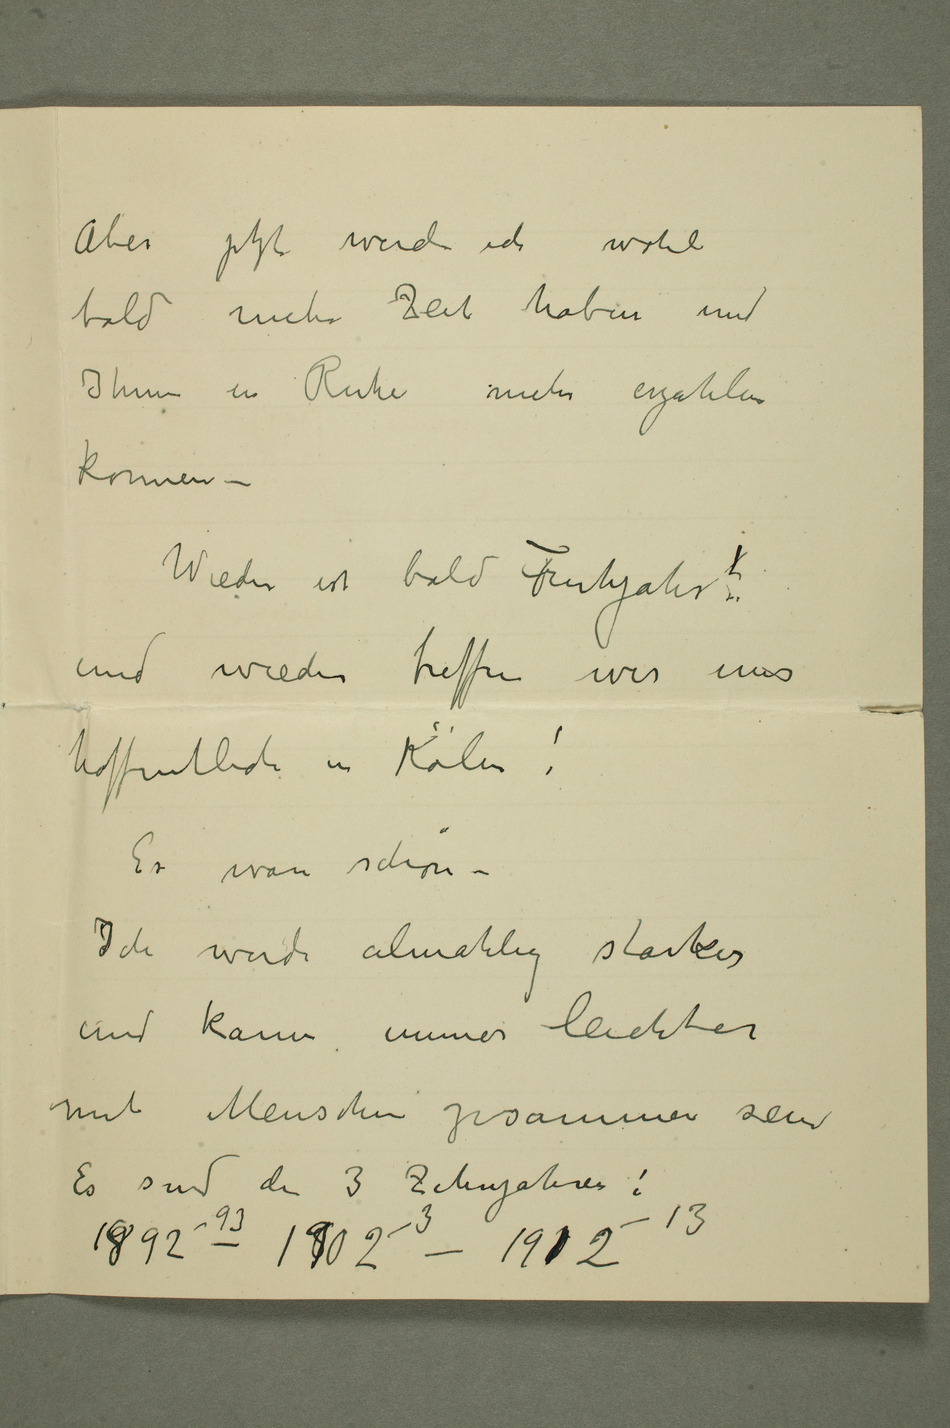 Aber jetzt werde ich wohl
bald mehr Zeit haben und
Ihnen in Ruhe mehr erzahlen
konnen –
Wieder ist bald Fruhjahr!
und wieder treffen wir uns
hoffentlich in Köln!
Es war schön –
Ich werde almahlig starker
und kann immer leichter
mit Menschen zusammen sein
Es sind die 3 Zehnjahren!
1892–93 – 1902–3 – 1912–13